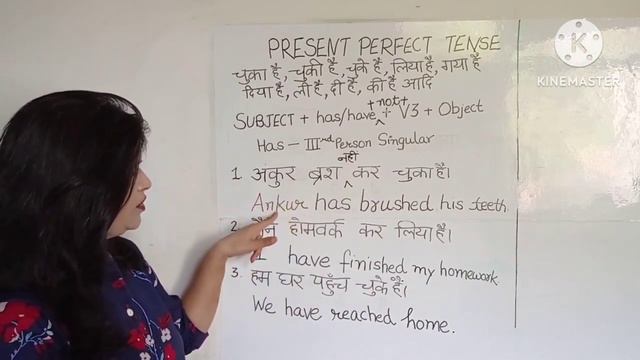 PRESENT PERFECT TENSE
चुका है, चुकी है, चुके है, लिया है, गया है
दिया है, ली है, दी है, की है आदि
+ not +
SUBJECT + has/have + V3 + Object
Has - IIInd Person Singular
नही
1 अंकुर ब्रश कर चुका है।
Ankur has brushed his teeth
2. मैंने होमवर्क कर लिया है।
I have finished my homework
3. हम घर पहुँच चुके हैं।
We have reached home.
KINEMASTER